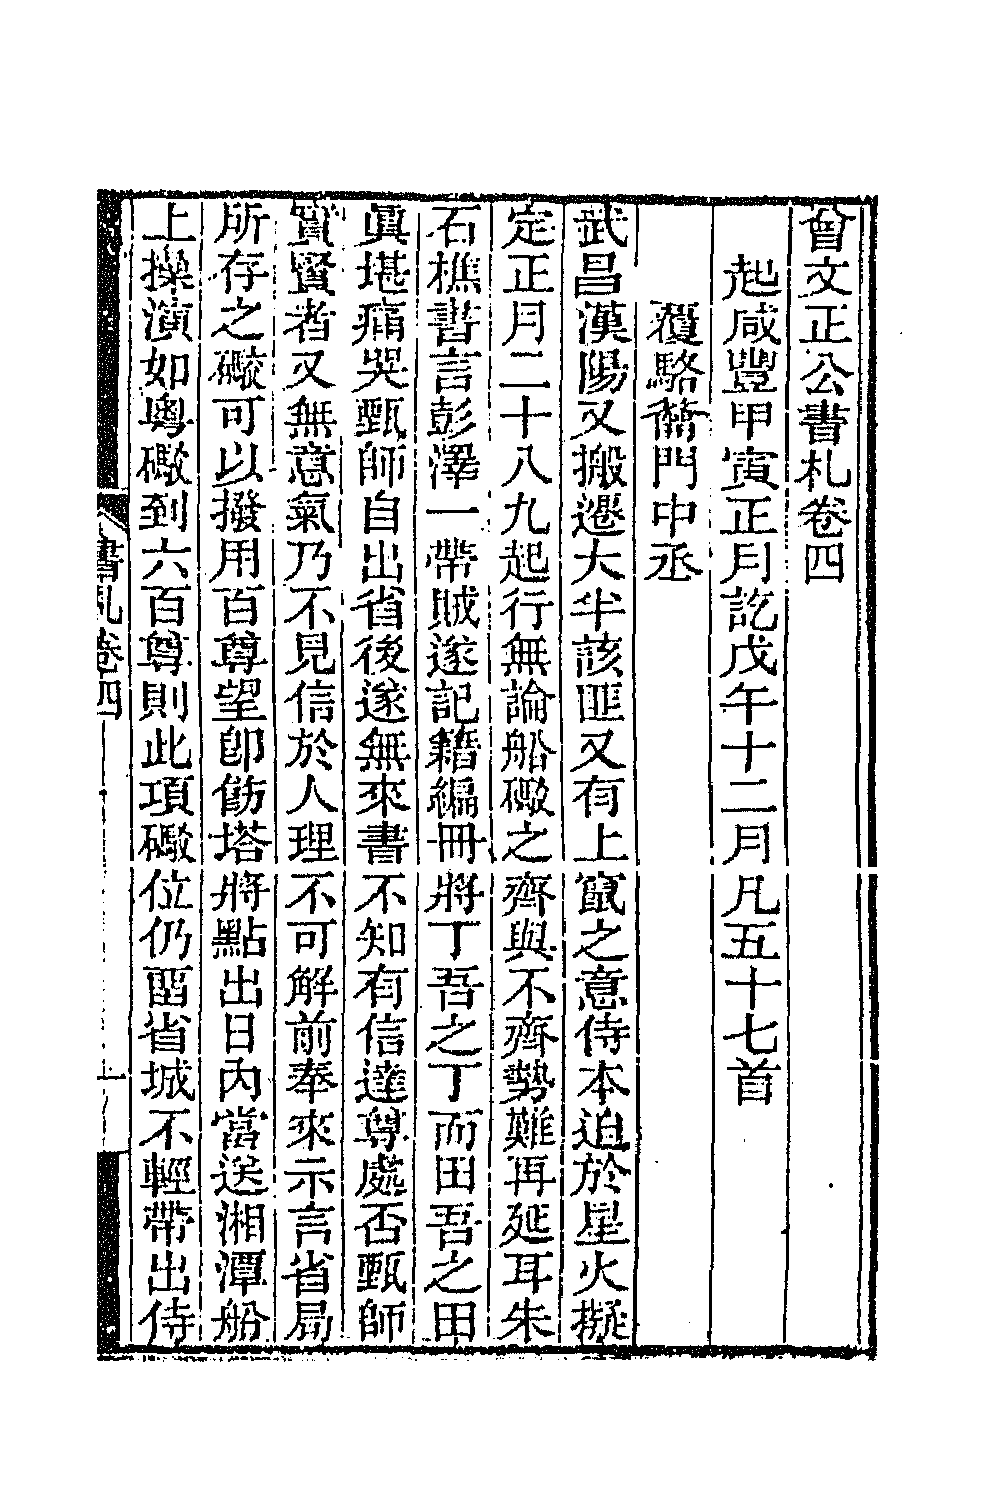 曾文正公書札卷四
起咸豐甲寅正月訖戊午十二月凡五十七首
覆駱籥門中丞
武昌漢陽又搬遷大半該匪又有上竄之意侍本迫於星火擬
定正月二十八九起行無論船礮之齊與不齊勢難再延耳朱
石樵書言彭澤一帶賊遂記籍編冊將丁吾之丁而田吾之田
眞堪痛哭甄師自出省後遂無來書不知有信達尊處否甄師
實賢者又無意氣乃不見信於人理不可解前奉來示言省局
所存之礮可以撥用百尊望卽飭塔將點出日內當送湘潭船
上操演如粵礮到六百尊則此項礮位仍畱省城不輕帶出侍
書札卷四
一